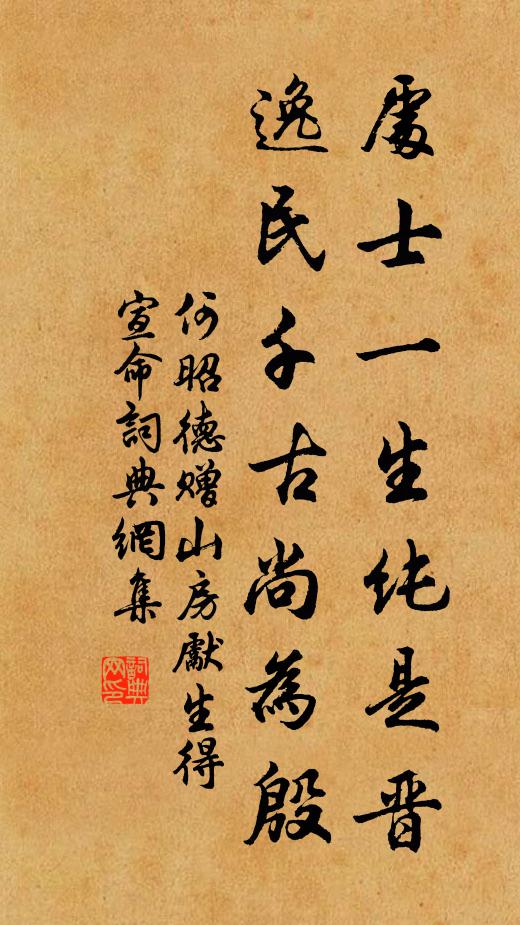 處士一生純是晉
逸民千古尚為殷
何昭德贈山房獻生得
宣命詞典網集
詞典
网印